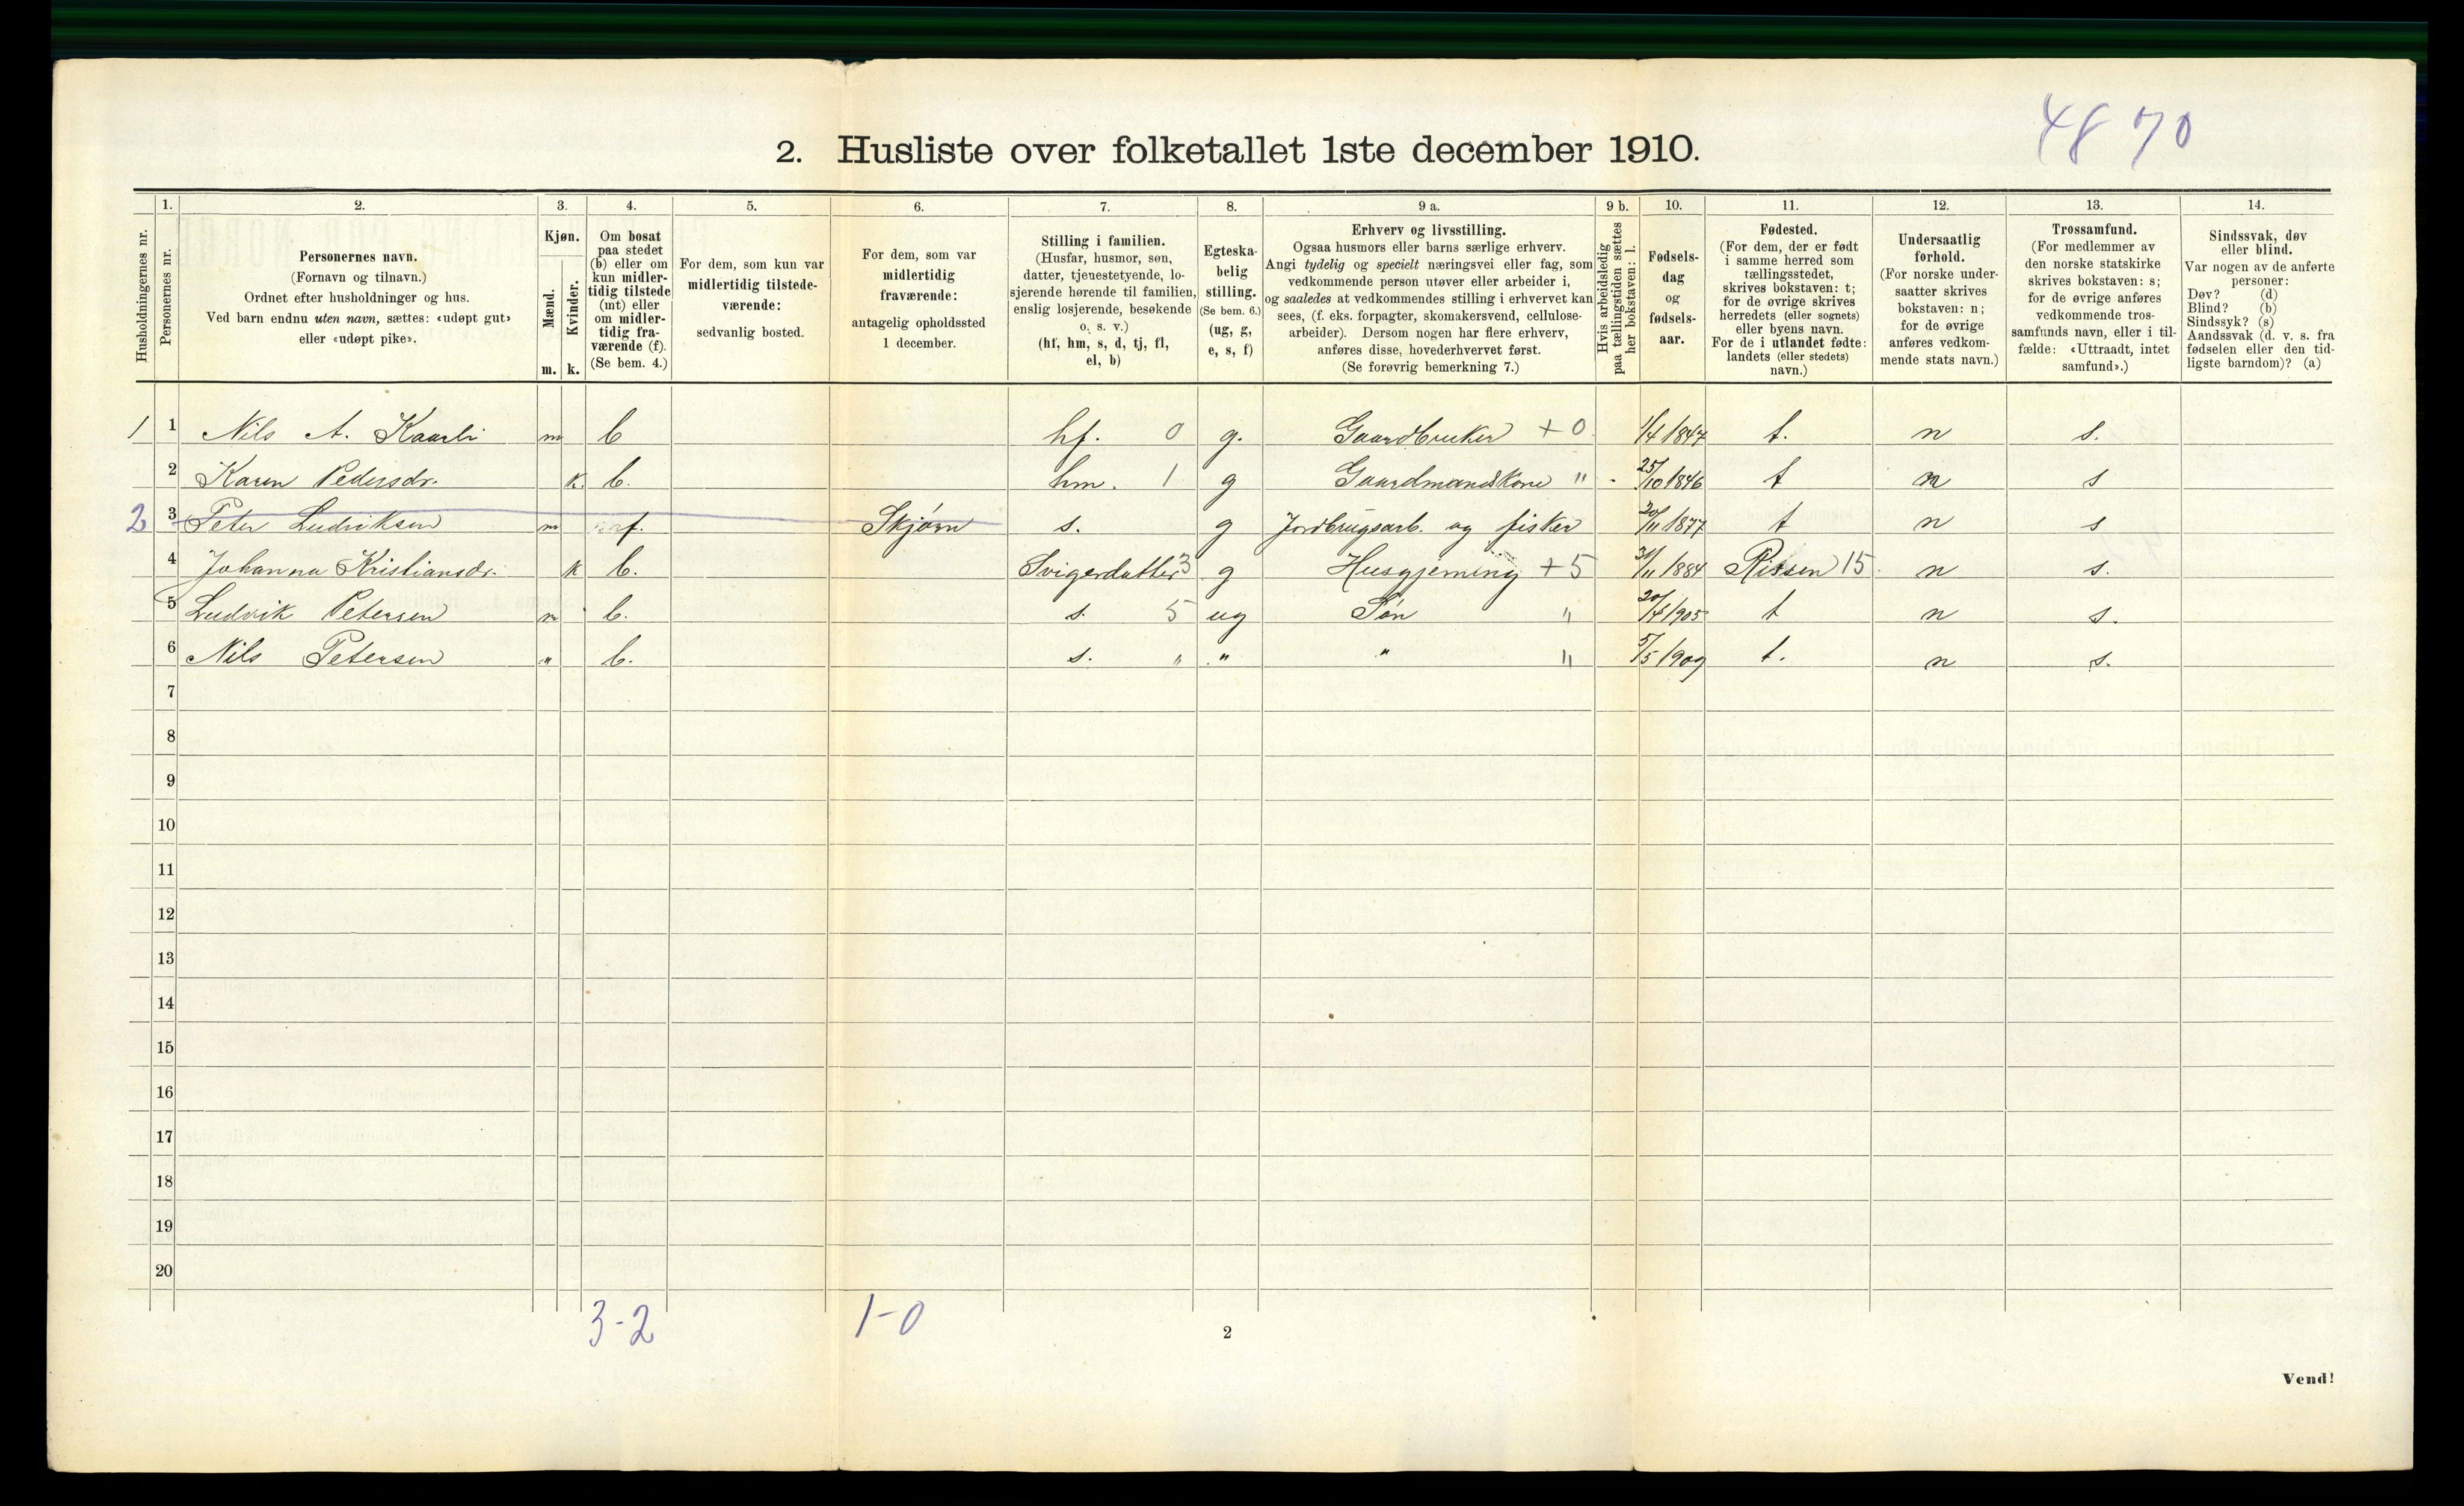 48 70
2. Husliste over folketallet 1ste december 1910.
Husholdningernes nr.
1.
Personernes nr.
2.
Personernes navn.
(Fornavn og tilnavn.)
Ordnet efter husholdninger og hus.
Ved barn endnu uten navn, sættes: «udøpt gut»
eller «udøpt pike».
3.
Kjøn.
Mænd.
Kvinder.
m. k.
4.
Om bosat
paa stedet
(b) eller om
kun midler-
tidig tilstede
(mt) eller
om midler-
tidig fra-
værende (f).
(Se bem. 4.)
5.
For dem, som kun var
midlertidig tilstede-
værende:
sedvanlig bosted.
6.
For dem, som var
midlertidig
fraværende:
antagelig opholdssted
1 december.
7.
Stilling i familien.
(Husfar, husmor, søn,
datter, tjenestetyende, lo-
sjerende hørende til familien,
enslig losjerende, besøkende
o. s. v.)
(hf, hm, s, d, tj, fl,
el, b)
8.
Egteska-
belig
stilling.
(Se bem. 6.)
(ug, g,
e, s, f)
9 a.
Erhverv og livsstilling.
Ogsaa husmors eller barns særlige erhverv.
Angi tydelig og specielt næringsvei eller fag, som
vedkommende person utøver eller arbeider i,
og saaledes at vedkommendes stilling i erhvervet kan
sees, (f. eks. forpagter, skomakersvend, cellulose-
arbeider). Dersom nogen har flere erhverv,
anføres disse, hovederhvervet først.
(Se forøvrig bemerkning 7.)
9 b.
Hvis arbeidsledig
paa tællingstiden sættes
her bokstaven: l.
10.
Fødsels-
dag
og
fødsels-
aar.
11.
Fødested.
(For dem, der er født
i samme herred som
tællingsstedet,
skrives bokstaven: t;
for de øvrige skrives
herredets (eller sognets)
eller byens navn.
For de i utlandet fødte:
landets (eller stedets)
navn.)
12.
Undersaatlig
forhold.
(For norske under-
saatter skrives
bokstaven: n;
for de øvrige
anføres vedkom-
mende stats navn.)
13.
Trossamfund.
(For medlemmer av
den norske statskirke
skrives bokstaven: s;
for de øvrige anføres
vedkommende tros-
samfunds navn, eller i til-
fælde: «Uttraadt, intet
samfund».)
14.
Sindssvak, døv
eller blind.
Var nogen av de anførte
personer:
Døv? (d)
Blind? (b)
Sindssyk? (s)
Aandssvak (d. v. s. fra
fødselen eller den tid-
ligste barndom)? (a)
1 1 Nils A. Kaarli m b hf. 0 g. Gaardbruker + 0 1/4 1847 t. n s.
2 Karen Pedersdr. k. b. hm. 1 g Gaardmandskone " 25/10 1846 t n s
2 3 Peter Ludviksen m f. Skjørn s. g Jordbrugsarb. og fisker 20/11 1877 t n s
4 Johanna Kristiansdr. k b. Svigerdatter 3 g Husgjerning + 5 /11 1884 Rissen 15 n s.
5 Ludvik Petersen m b. s. 5 ug Søn " 20/4 1905 t n s.
6 Nils Petersen " b. s. " " " " 5/5 1909 t. n s.
7
8
9
10
11
12
13
14
15
16
17
18
19
20
3-2 1-0
2
Vend!